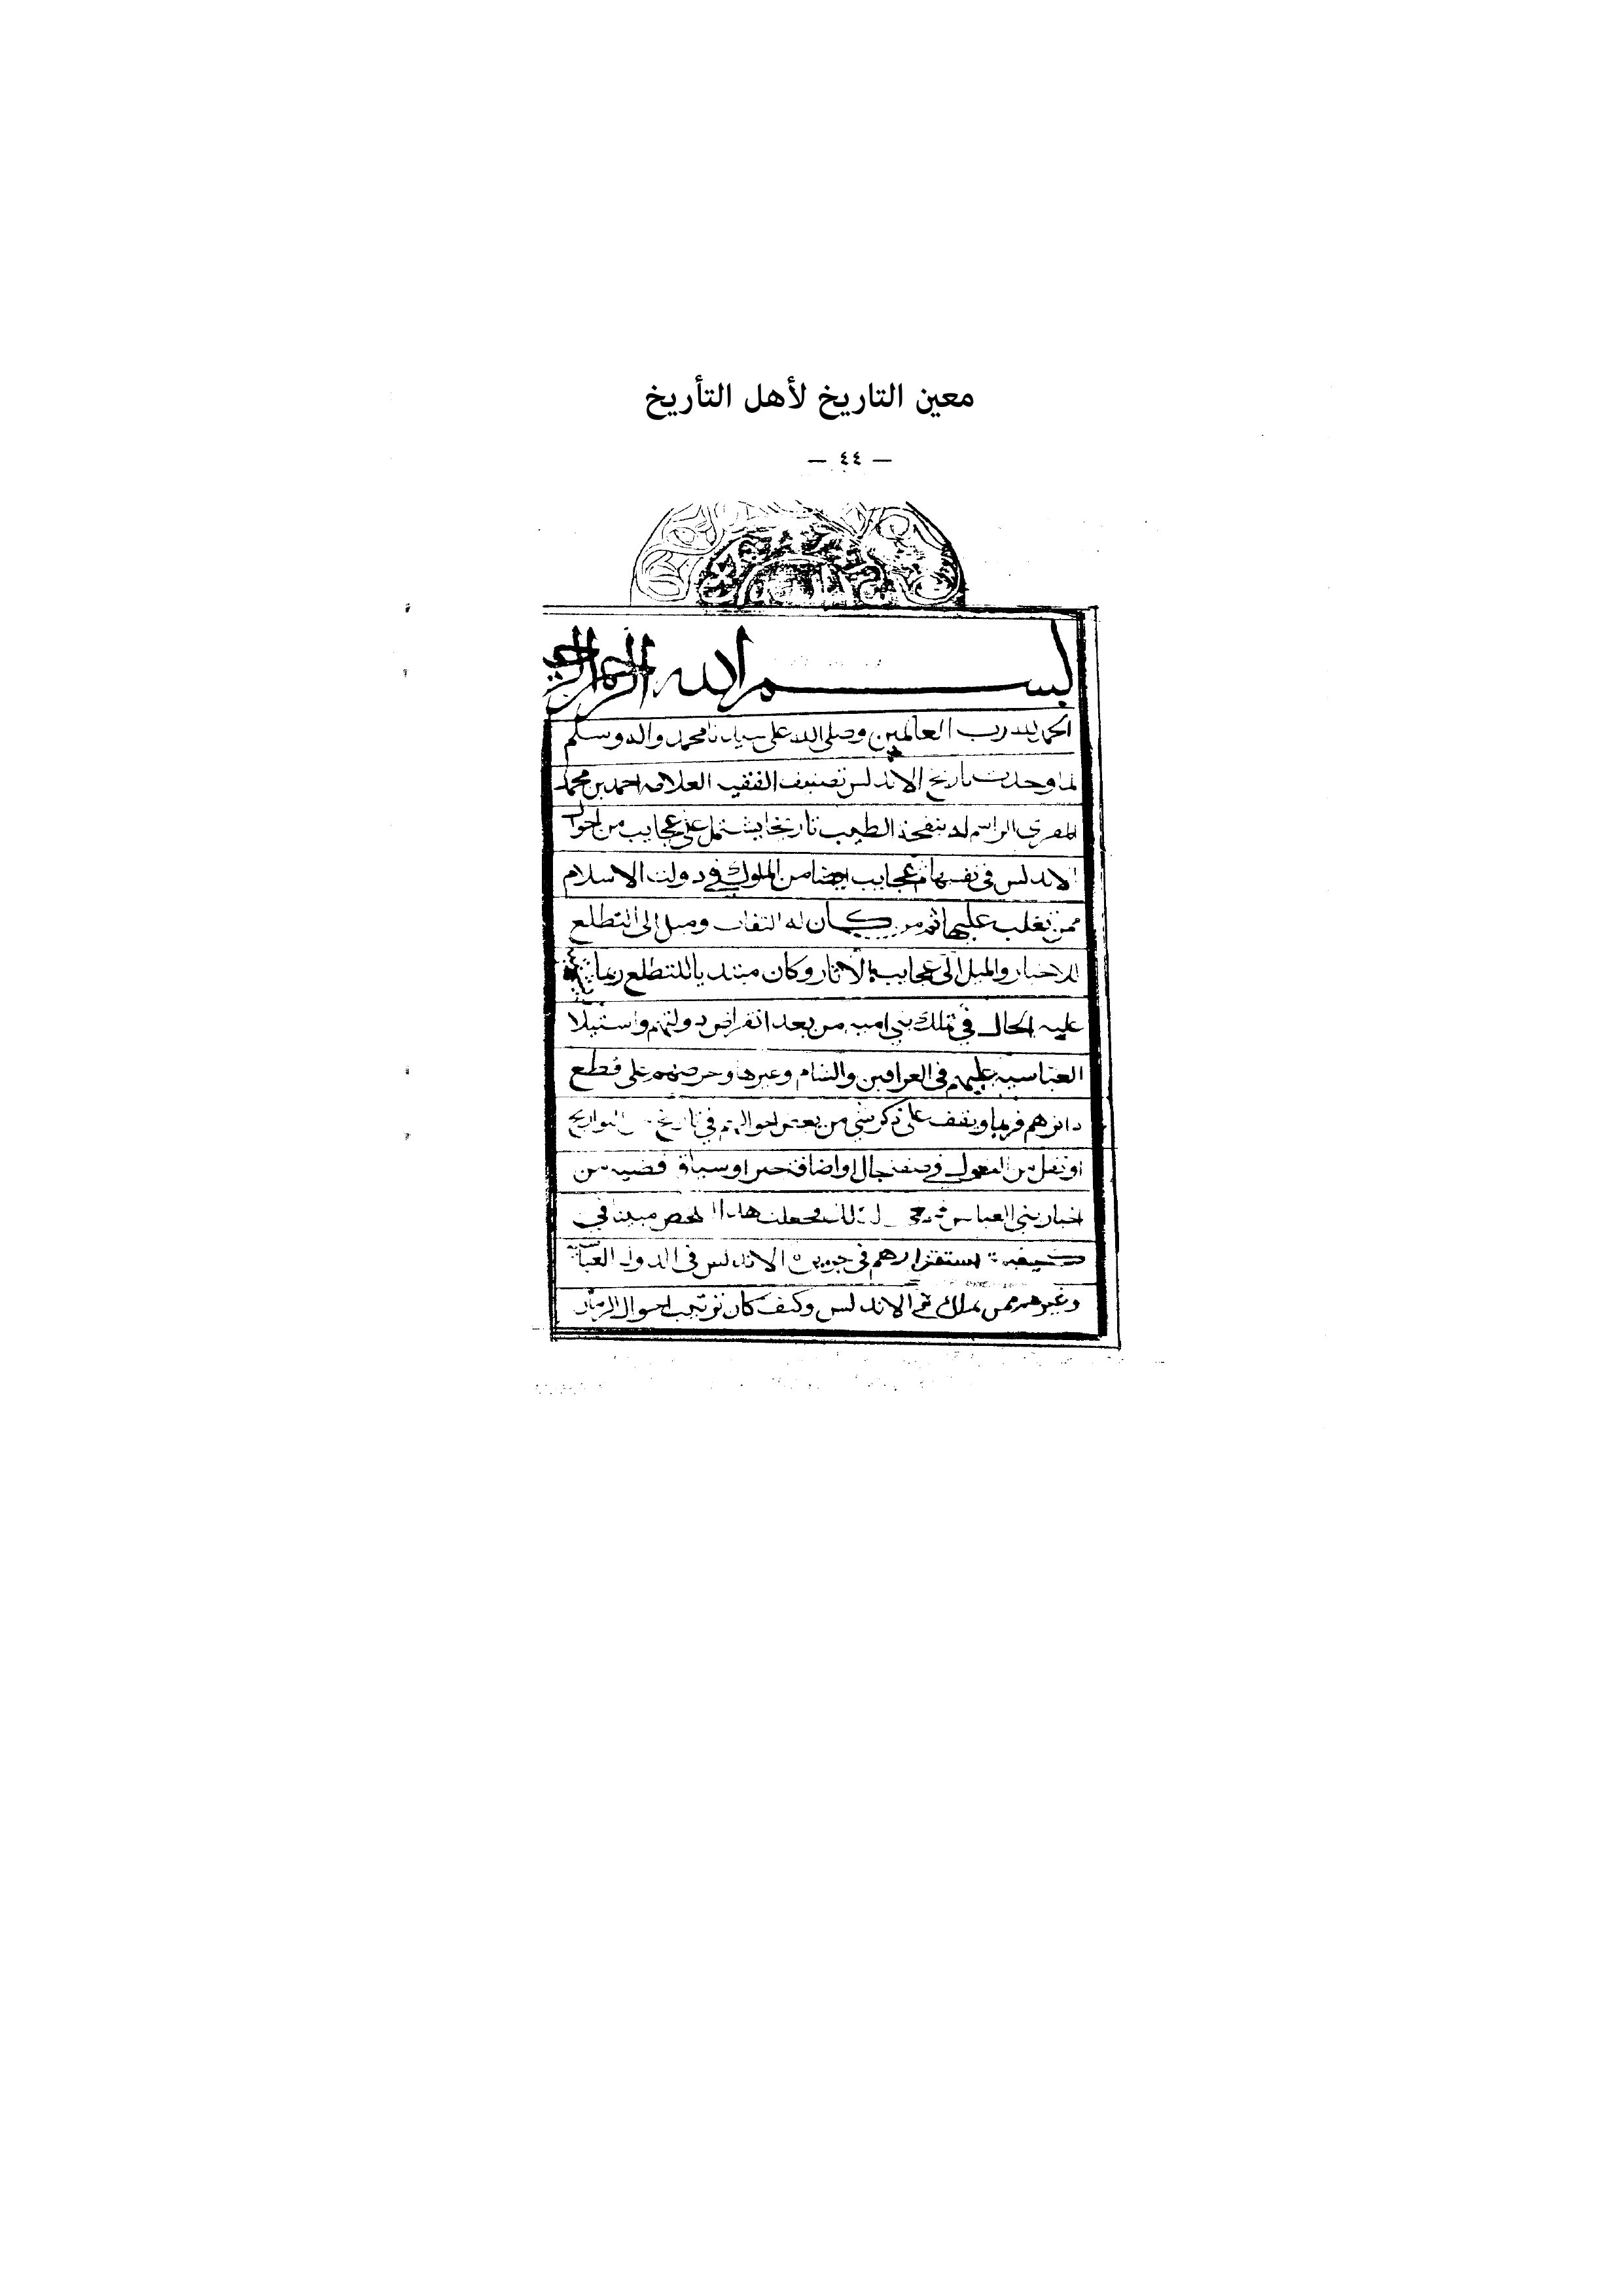 معين التاريخ لأهل التأريخ
— ٤٤ —
بسم الله الرحمن الرحيم
الحمد لله رب العالمين وصلى الله على سيدنا محمد واله وسلم
لما وجدت تاريخ الاندلس تصنيف الفقيه العلامه احمد بن محمد
المقري الراسم له بنفحة الطيب تاريخا يشتمل على عجايب من احوال
الاندلس في نفسها ثم عجايب ايضا من الملوك في دولت الاسلام
ممن تغلب عليها ثم من كان له التفات وميل الى التطلع
للاخبار والميل الى عجايب الاثار وكان مبتديا للتطلع ربما
عليه الحال في تملك بني اميه من بعد انقراض دولتهم واستيلا
العباسيه عليهم في العراقين والشام وغيرها وحرصهم على قطع
دابرهم فربما ويقف على ذكر شي من بعض احوالهم في تاريخ من التواريخ
او نقل من النقول في صفة حال او اضافة خبر او سياق قضيه من
اخبار بني العباس لذلك فجعلت هذا مبينا في
كيفية استقرارهم في جزيرة الاندلس في الدولة العباسية
وغيرهم ممن ملك في الاندلس وكيف كان ترتيب احوال الزمان